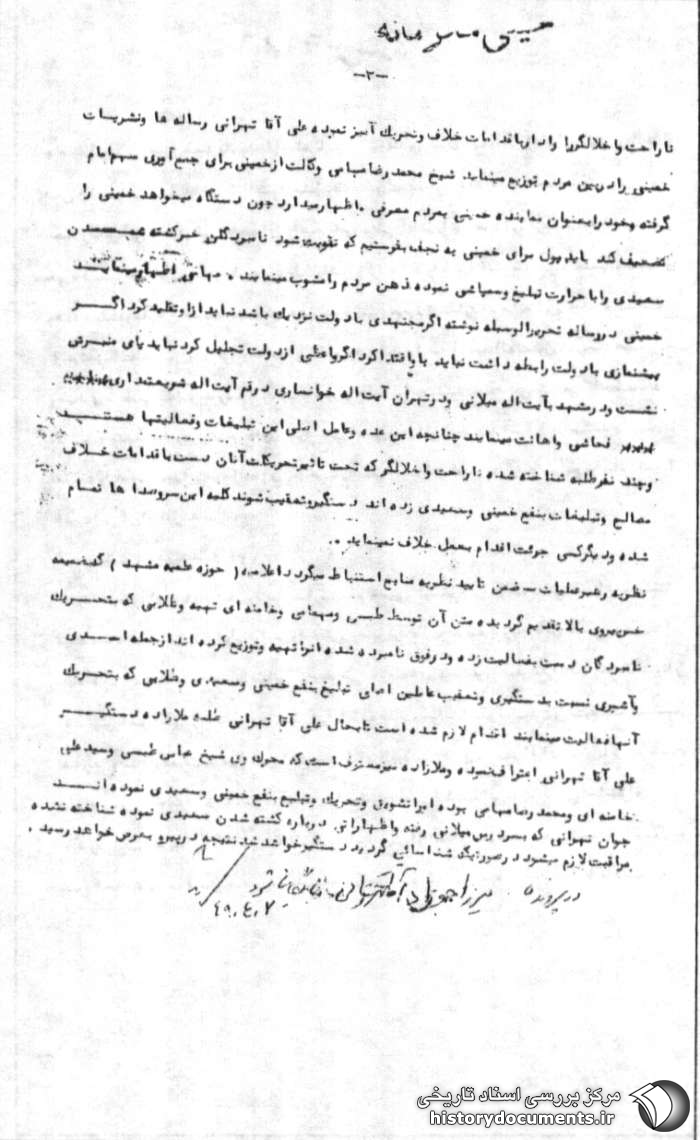 -۲-
ناراحت و اخلالگر را وادار باقدامات خلاف و تحریك آمیز نموده علی آقا تهرانی رساله ها و نشریات
خمینی را در بین مردم توزیع مینماید. شیخ محمد رضا مهامی وکالت از خمینی برای جمع آوری سهم امام
گرفته و خود را بعنوان نماینده خمینی بمردم معرفی و اظهار میدارد چون دستگاه میخواهد خمینی را
تضعیف کند باید پول برای خمینی به نجف بفرستیم که تقویت شود نامبردگان خبر کشته شدن
سعیدی را با حرارت تبلیغ و سمپاشی نموده ذهن مردم را مشوب مینمایند. مهامی اظهار مینماید
خمینی در رساله تحریرالوسیله نوشته اگر مجتهدی با دولت نزدیك باشد نباید از او تقلید کرد اگر
پیشنمازی با دولت رابطه داشت نباید باو اقتدا کرد اگر واعظی از دولت تجلیل کرد نباید پای منبرش
نشست و در مشهد بآیت اله میلانی و در تهران آیت اله خوانساری در قم آیت اله شریعتمداری
فحاشی و اهانت مینمایند چنانچه این عده و عامل اصلی این تبلیغات و فعالیتها هستند
و چند نفر طلبه شناخته شده ناراحت و اخلالگر که تحت تاثیر تحریکات آنان دست باقدامات خلاف
مصالح و تبلیغات بنفع خمینی و سعیدی زده اند دستگیر و تعقیب شوند کلیه این سر و صدا ها تمام
شده و دیگر کسی جرئت اقدام بعمل خلاف نمینماید.
نظریه رهبر عملیات ـ ضمن تایید نظریه منابع استنباط میگردد اعلامیه (حوزه علمیه مشهد) که ضمیمه
بالا تقدیم گردیده متن آن توسط طبسی و مهامی و خامنه ای تهیه و طلابی که بتحریك
نامبردگان دست بفعالیت زده و در فوق نامبرده شده اند تهیه و توزیع کرده اند از جمله اسدی
و آشیری نسبت بدستگیری و تعقیب عاملین اصلی تبلیغ بنفع خمینی و سعیدی و طلابی که بتحریك
آنها فعالیت مینمایند اقدام لازم شده است تا بحال علی آقا تهرانی طلبه ملازاده دستگیر
علی آقا تهرانی اعتراف ننموده و ملازاده نیز معترف است که محرك وی شیخ عباس طبسی و سید علی
خامنه ای و محمد رضا مهامی بوده او را تشویق و تحریك و تبلیغ بنفع خمینی و سعیدی نموده اند
جوان تهرانی که بسر درس میلانی رفته و اظهاراتی درباره کشته شدن سعیدی نموده شناخته نشده
مراقبت لازم میشود در صورتیکه شناسائی گردید دستگیر خواهد شد نتیجه در پیرو بعرض خواهد رسید.
در پرونده میرزا جواد آقا تهرانی
۴۹،۴،۷
مرکز بررسی اسناد تاریخی
historydocuments.ir